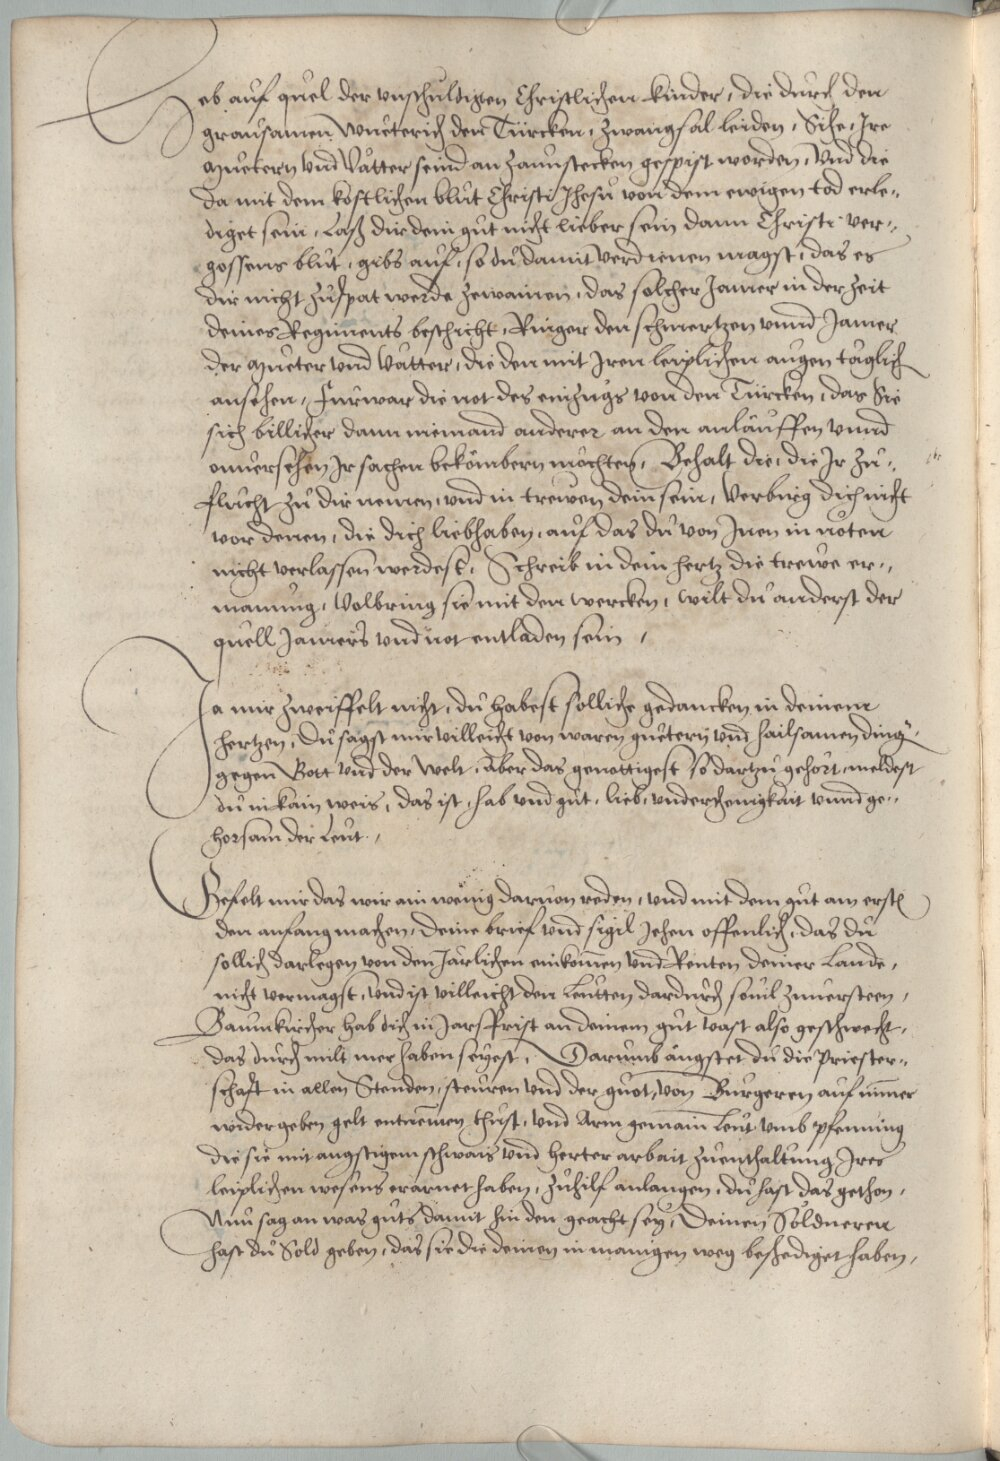 Heb auf quel der vnschuldigen Christlichen kinder, die durch den
grausamen wueterich den Türcken, zwangsal leiden, Sihe, Ire
Mueter vnd Vätter seind an zaunstecken gespist worden, Vnd die
da mit dem kostlichen blut Christi Jhesu von dem ewigen tod erle-
diget sein, Lass dir dein gut nicht lieber sein dann Christi ver-
gossens blut, gibs auf, so du damit verdienen magst, das es
dir nicht zuspat werde zewainen, das solcher Jamer in der zeit
deines Regiments beschicht, Ringer den schmertzen vnnd Jamer
der Mueter vnd Vätter, die den mit Iren leiplichen augen täglich
ansehen, Furwar die not des einzugs von den Türcken, das Sie
sich billicher dann niemand anderer an den anläuffen vnnd
vnuersehen Ir sachen bekömbern möchten, Behalt die, die Ir zu-
flucht zu dir nemen, vnd in trewen dein sein, Verburg dich nicht
vor denen, die dich liebhaben, auf das du von Inen in nöten
nicht verlassen werdest, Schreib in dein hertz die trewe er-
manung, Volbring sie mit den wercken, wilt du anderst der
quell Jamers vnd not entladen sein,
Ja mir zweiffelt nicht, du habest solliche gedancken in deinem
hertzen, Du sagst mir villeicht von waren guetern vnd hailsamen ding
gegen Gott vnd der Welt, Aber das genottigest so dartzu gehört, meldest
du in kain weis, das ist, hab vnd gut, lieb, vnderthenigkait vnnd ge-
horsam der Leut,
Gefelt mir das wir ain wenig daruon reden, vnd mit dem gut am erst
den anfang machen, Deine brief vnd sigil Jehen offenlich, das du
sollich darlegen von den Järlichen einkomen vnd Renten deiner Lande,
nicht vermagst, vnd ist villeicht den Leutten dardurch souil zuuersteen,
Baumkircher hab dich in Jarsfrist an deinem gut vast also geschwecht,
das durch milt mer haben seyest, Darumb ängstet du die Priester-
schaft in allen Stenden, steuren vnd der guot, von Burgeren auf nimmer
widergeben gelt entnemen thust, vnd Arm gemain Leut vmb pfenning
die sie mit angstigem schwais vnd herter arbait zuenthaltung Ires
leiplichen wesens erarnet haben, zuhilf anlangen, du hast das gethon,
Nun sag an was guts damit hin den geacht sey, Deinen Söldneren
hast du Sold geben, das sie die deinen in manigen weg beschediget haben,